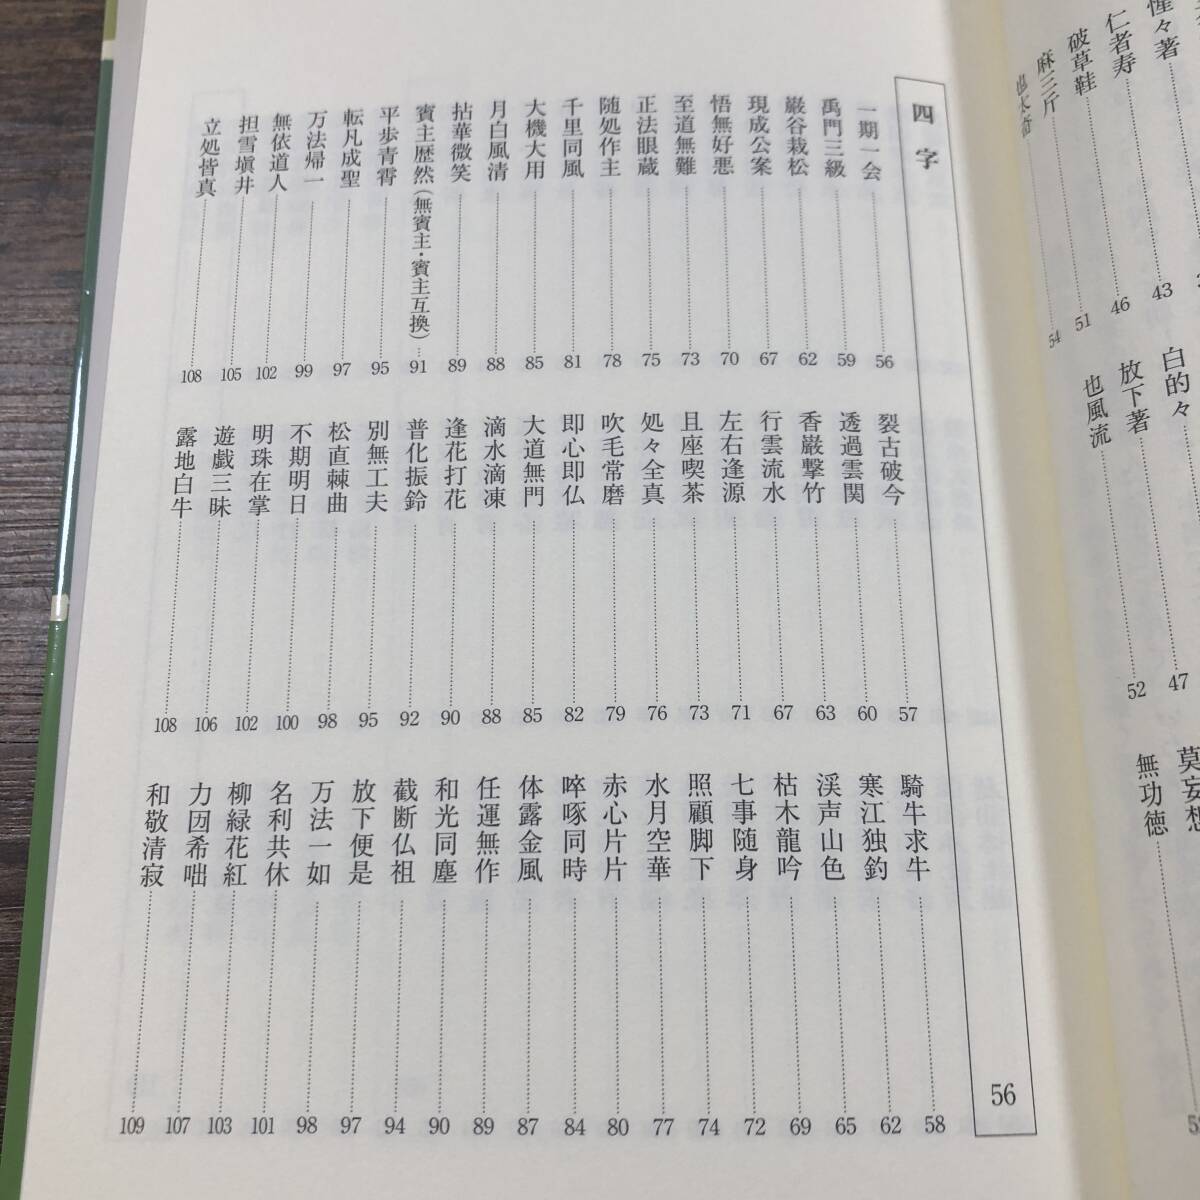 惺々著
仁者寿 43
白的々
莫妄想
破草鞋 46
放下著 47
無功徳
麻三斤 51
也風流 52
也太奇 54
四字 56
一期一会 56
裂古破今 57
騎牛求牛 58
禹門三級 59
透過雲関 60
寒江独釣 62
巌谷栽松 62
香厳撃竹 63
渓声山色 65
現成公案 67
行雲流水 67
枯木龍吟 69
悟無好悪 70
左右逢源 71
七事随身 72
至道無難 73
且座喫茶 73
照顧脚下 74
正法眼蔵 75
処々全真 76
水月空華 77
随処作主 78
吹毛常磨 79
赤心片片 80
千里同風 81
即心即仏 82
啐啄同時 84
大機大用 85
大道無門 85
体露金風 87
月白風清 88
滴水滴凍 88
任運無作 89
拈華微笑 89
逢花打花 90
和光同塵 90
賓主歴然（無賓主・賓主互換） 91
普化振鈴 92
截断仏祖 94
平歩青霄 95
別無工夫 95
放下便是 97
転凡成聖 97
松直棘曲 98
万法一如 98
万法帰一 99
不期明日 100
名利共休 101
無依道人 102
明珠在掌 102
柳緑花紅 103
担雪塡井 105
遊戯三昧 106
力囙希咄 107
立処皆真 108
露地白牛 108
和敬清寂 109